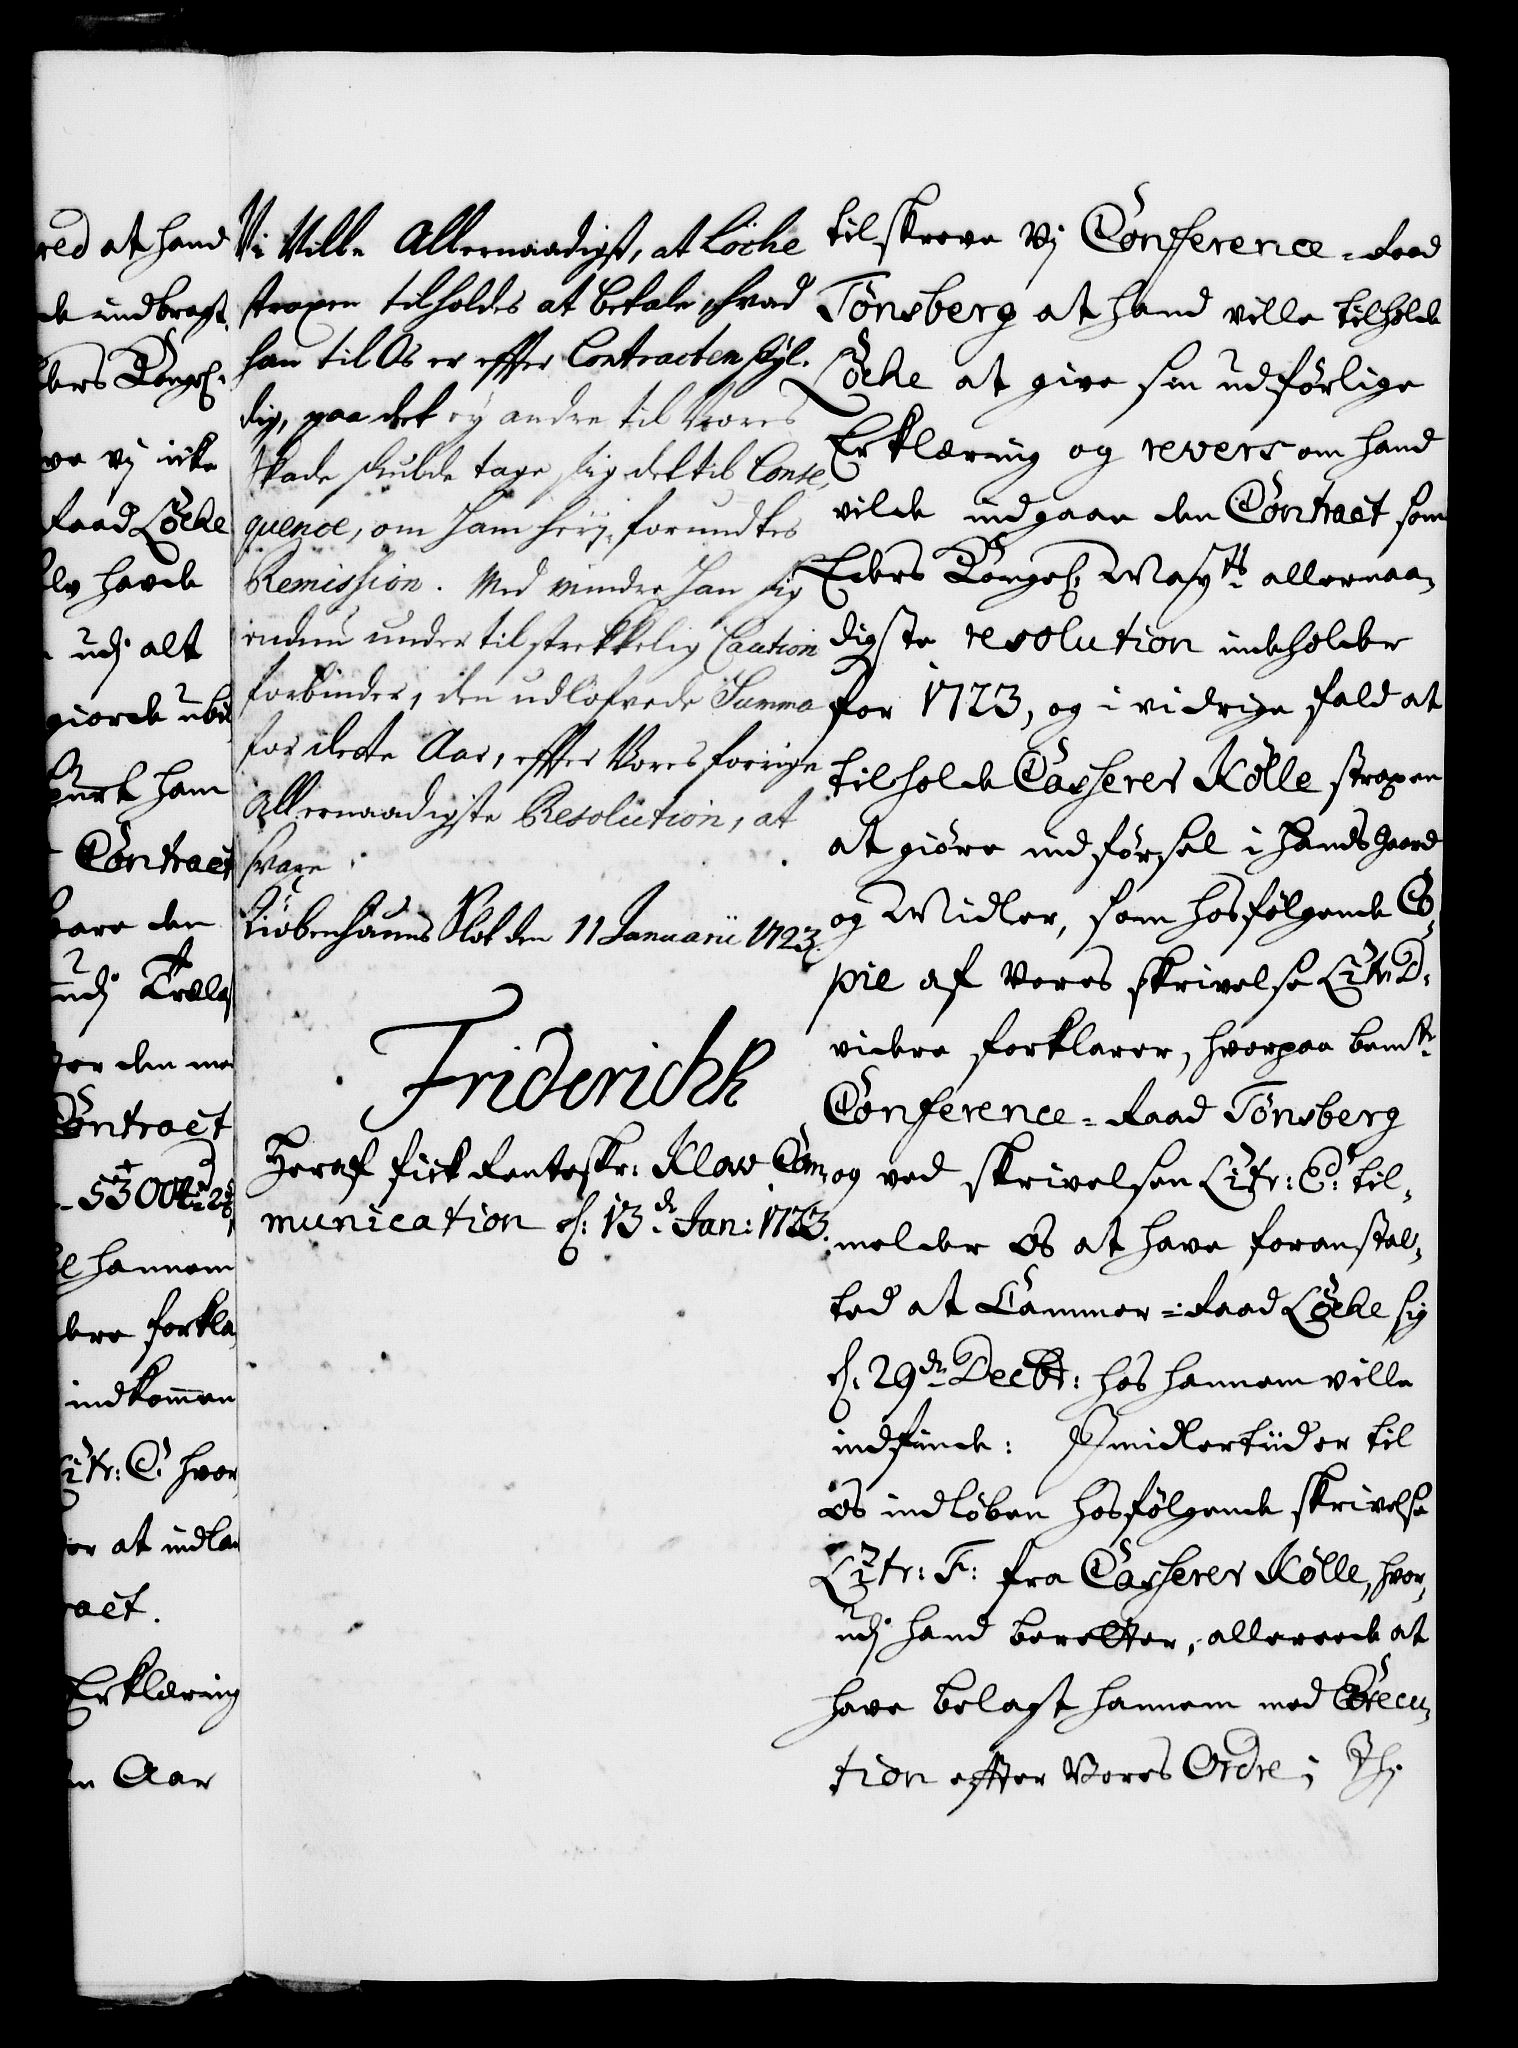 red at hand
de indbragt
ders Kongel:
ve vj icke
Raad Løcke
havde
udj alt
giorde
ham
Contract
bare den
udj
for den
Contract
5300
hannem
dere forkla,
indkommen
Litr: C: hvor
er at indla
act.
Erklæring
Aar
Vi Ville Allernaadigst, at Löcke
straxen tilholdes at betale, hvad
han til Os er effter Contracten skyl-
dig, paa det ey andre til Vores
skade skulde tage sig det til Conse,
quence, om ham herj forundtes
Remission. Med mindre han sig
endnu under tilstrekkelig Caution
forbinder, den udlofvede Summa
for dette Aar, effter Vores forrige
Allernaadigste Resolution, at
svare.
Kiøbenhauns Slot den 11 Januarii 1723.
Friderich R
Heraf fick Renteskr: Klow Com,
munication d: 13de Jan: 1723.
tilskreve vj Conference-Raad
Tønsberg at hand ville tilholde
Løcke at give sin udførlige
Erklæring og revers om hand
vilde indgaae den Contract som
Eders Kongel: Mayts allernaa,
digste resolution indeholder
for 1723, og i vidrige fald at
tilholde Casserer Kølle straxen
at giöre indførsel i hands gaard
og Midler, som hosfølgende Co,
pie af vores skrivelse Litr: D:
videre forklarer, hvorpaa bemte
Conference-Raad Tönsberg
og ved skrivelsen Litr: E: til,
melder os at have foranstal,
ted at Cammer-Raad Løcke sig
d: 29de Decbr: hos hannem ville
indfinde: Imidlertiid er til
os indløben hosfølgende skrivelse
Litr: F: fra Casserer Kølle, hvor,
udj hand beretter, allereede at
have belagt hannem med Execu,
tion effter Vores Ordre;